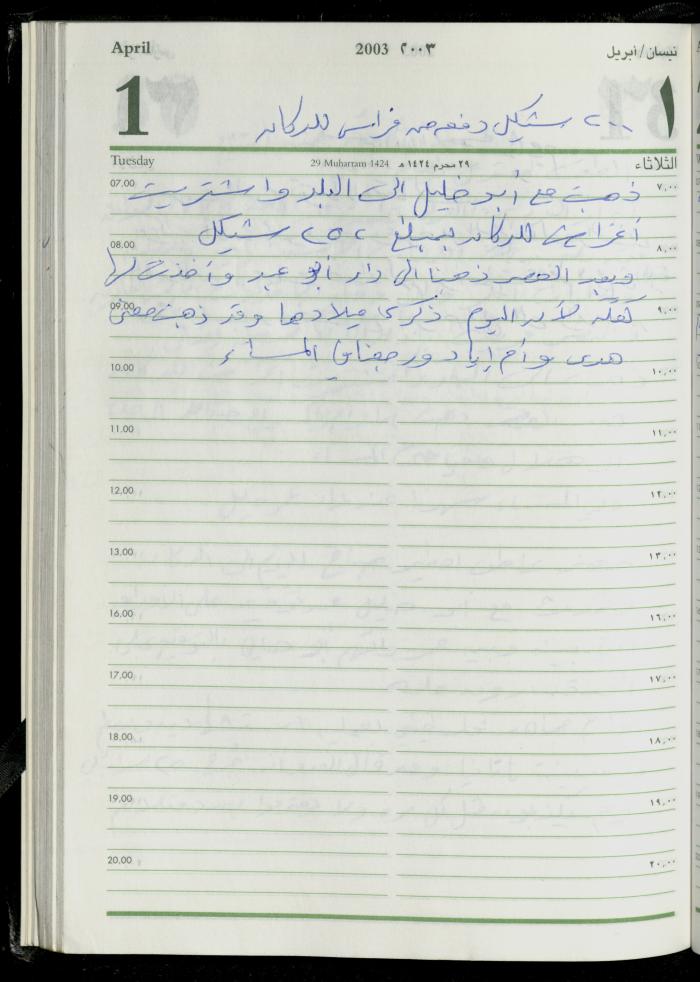 April 2003 ٢٠٠٣ نيسان/أبريل
1 ١
٢٠٠ شيكل دفعه من فراس للدكان
Tuesday 29 Muharram 1424 ٢٩ محرم ١٤٢٤ هـ الثلاثاء
07.00 ذهبت مع أبو خليل الى البلد واشتريت ٧,٠٠
أغراض للدكان بمبلغ ٢٥٢ شيكل
08.00 ٨,٠٠
وبعد العصر ذهبنا الى دار أبو عبد وأخذت لها
09.00 كعكة لأن اليوم ذكرى ميلادها وقد ذهبت معي ٩,٠٠
هدى وأم إياد ورجعنا المساء
10.00 ١٠,٠٠
11.00 ١١,٠٠
12.00 ١٢,٠٠
13.00 ١٣,٠٠
16.00 ١٦,٠٠
17.00 ١٧,٠٠
18.00 ١٨,٠٠
19.00 ١٩,٠٠
20.00 ٢٠,٠٠